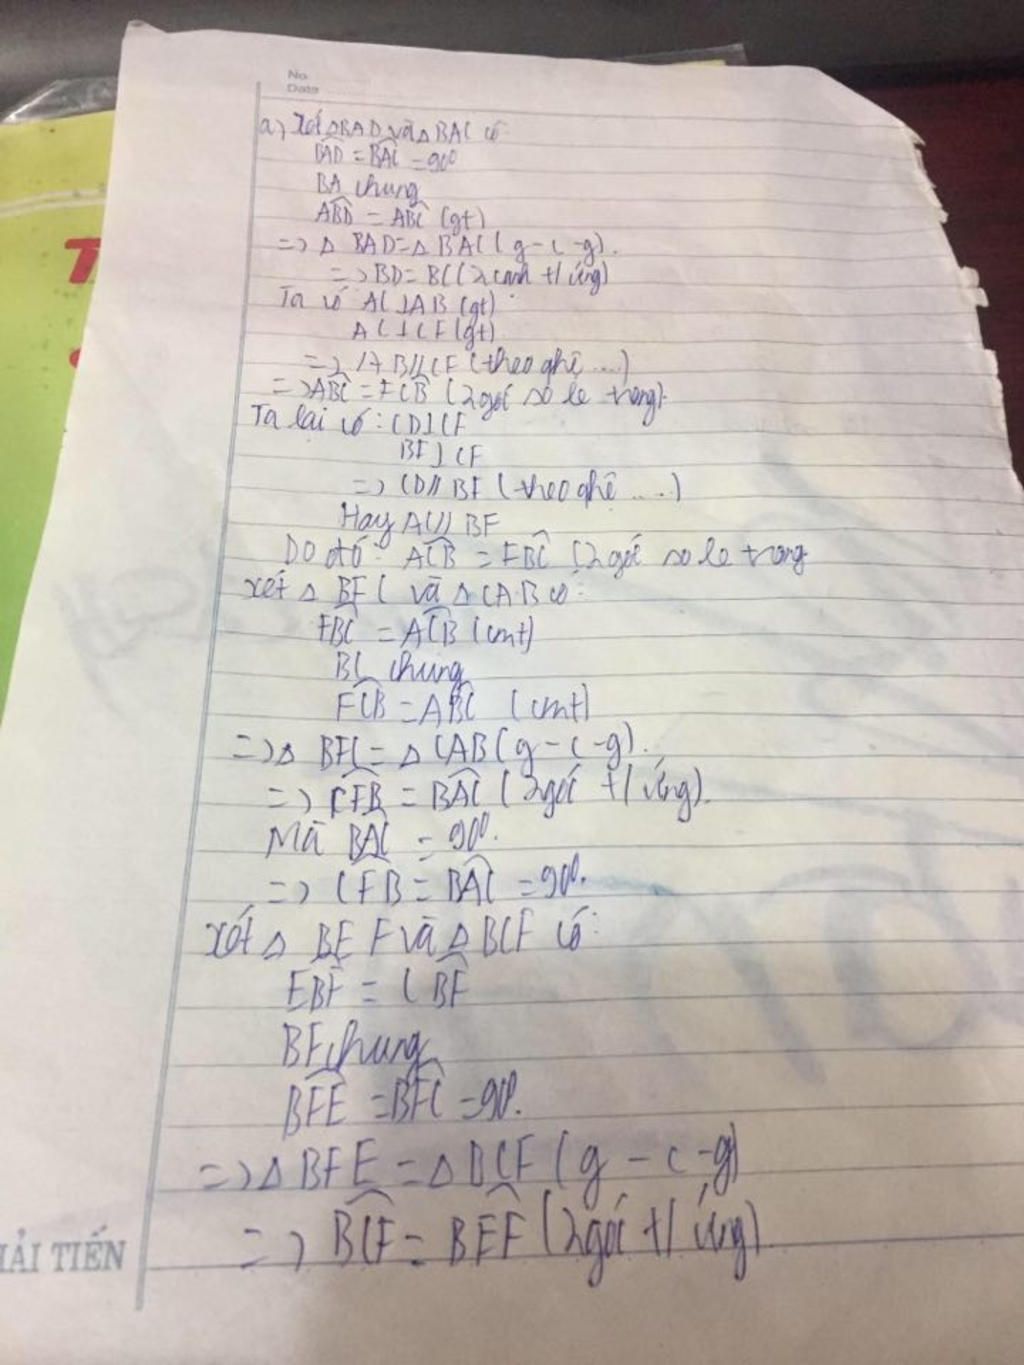 No.
Date
a) Xét △BAD và △BAC có
BAD = BAC = 90⁰
BA chung
ABD = ABC (gt)
=> △ BAD = △ BAC (g-c-g).
=> BD = BC (2 cạnh t/ứng)
Ta có AC ⊥ AB (gt)
AC ⊥ CF (gt)
=> AB // CF (theo ghê ....)
=> ABC = FCB (2 góc so le trong).
Ta lại có: CD ⊥ CF
BF ⊥ CF
=> CD // BF (theo ghê .....)
Hay AC // BF
Do đó: ACB = FBC (2 góc so le trong
xét △ BFC và △ CAB có:
FBC = ACB (cmt)
BC chung
FCB = ABC (cmt)
=> △ BFC = △ CAB (g-c-g).
=> CFB = BAC (2 góc t/ứng).
Mà BAC = 90⁰.
=> CFB = BAC = 90⁰.
xét △ BEF và △ BCF có:
EBF = CBF
BF chung
BFE = BFC = 90⁰.
=> △ BFE = △ BCF (g-c-g)
=> BCF = BEF (2 góc t/ứng)
ẢI TIẾN